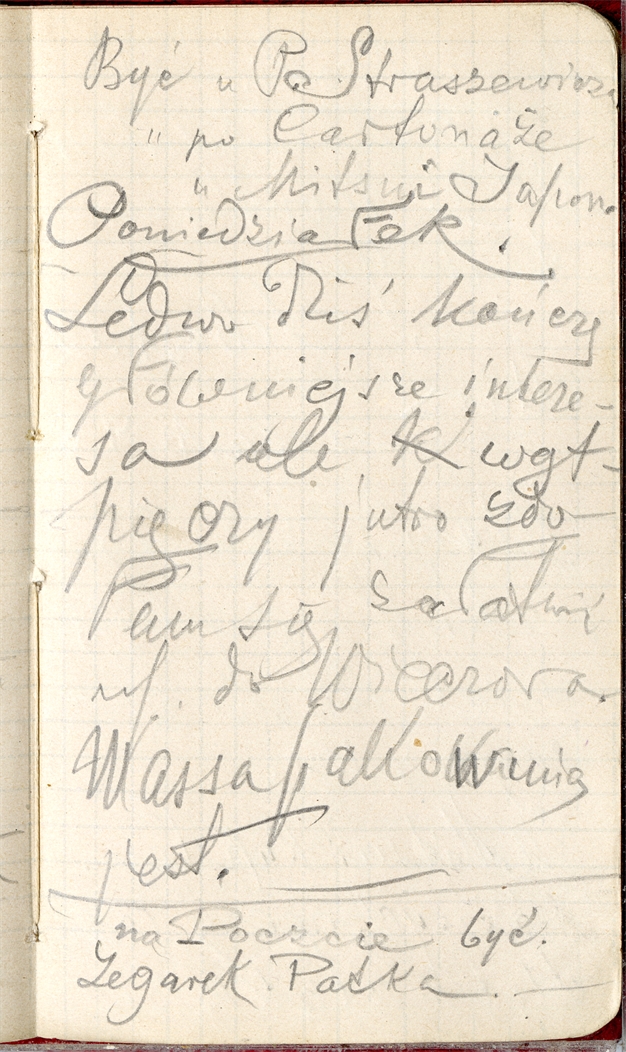 Być u Pa Straszewicza
" po Cartonaże
u Mitsui Japon.
Poniedziałek.
Ledwo dziś kończę
główniejsze intere-
sa ale wąt-
pię czy jutro zdo-
łam się załatwić
do Wieczora.
Massa pakowania
jest.
na Poczcie być.
Zegarek Patka